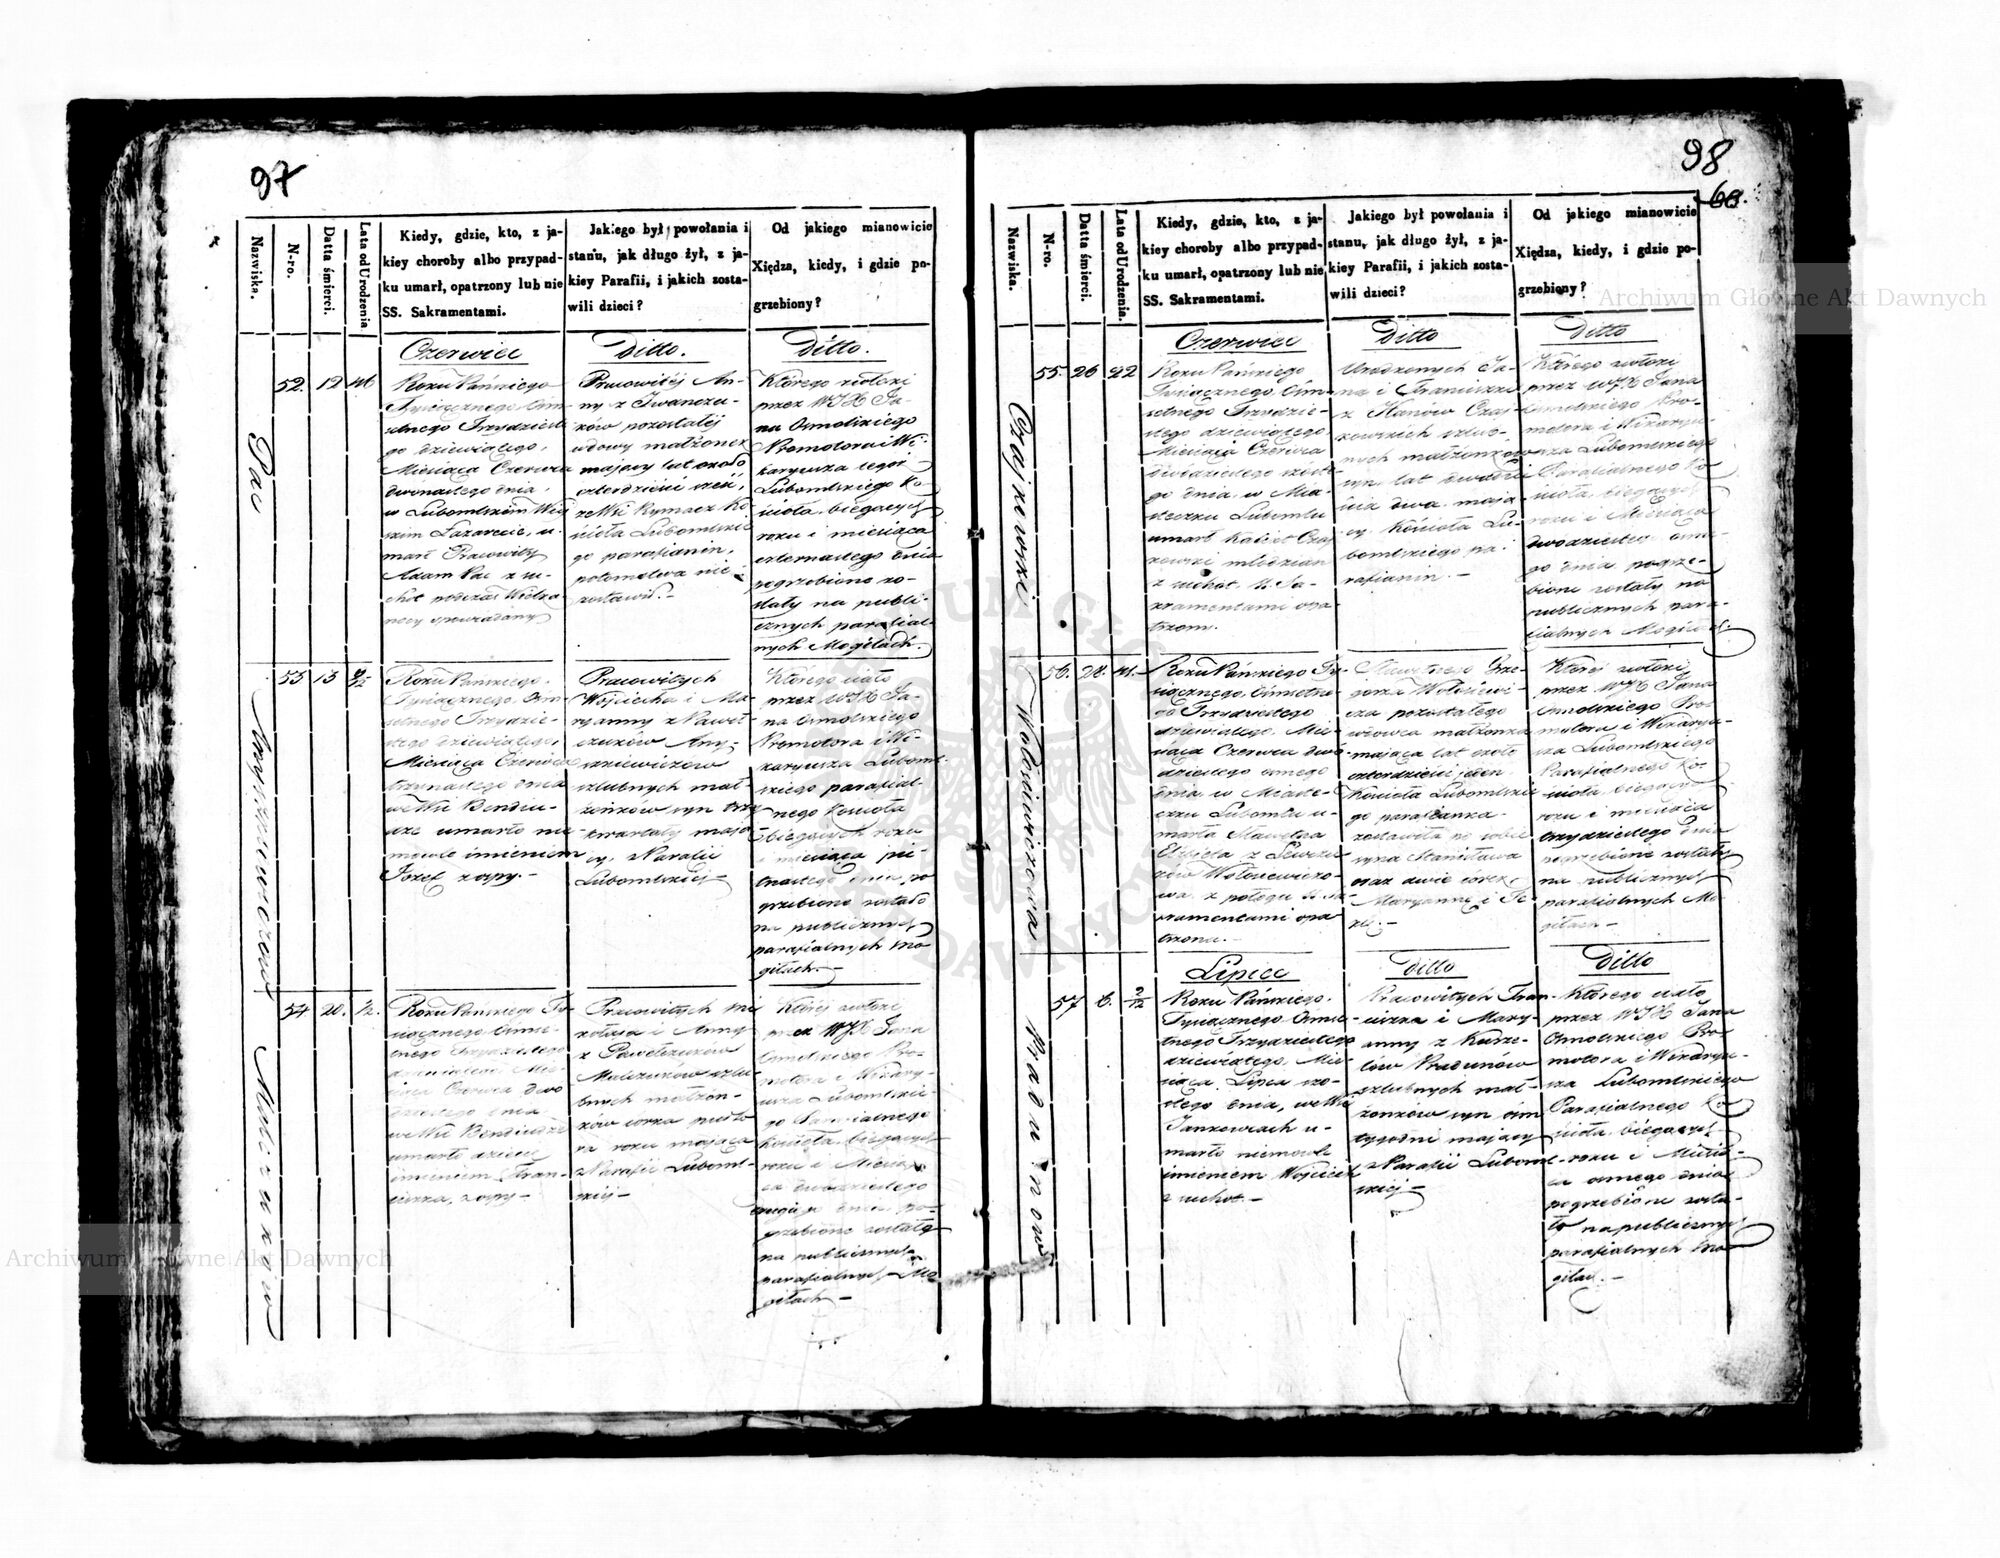 97
Nazwiska.
N-ro.
Datta śmierci.
Lata od Urodzenia
Kiedy, gdzie, kto, z ja-
kiey choroby albo przypad-
ku umarł, opatrzony lub nie
SS. Sakramentami.
Jakiego był powołania i
stanu, jak długo żył, z ja-
kiey Parafii, i jakich zosta-
wili dzieci?
Od jakiego mianowicie
Xiędza, kiedy, i gdzie po-
grzebiony?
Czerwiec
Ditto.
Ditto.
Pac
52. 12 46
Roku Pańskiego
Tysiącznego Ośm-
setnego Trzydzieste
go dziewiątego,
Miesiąca Czerwca
dwónastego dnia,
w Lubomlskim Wię
rzem Lazarecie, u-
marł Pracowity
Adam Pac z su-
chot podczas Wielka
nocy spowiadany
Pracowitéj An-
ny z Iwanczu-
ków pozostałéj
wdowy małżonek
maiący lat około
czterdzieści sześć,
ze Wsi Rymacz Ko
ścioła Lubomlskie
go parafianin,
potomstwa nie
zostawił.-
Którego zwłoki
przez WJX Ja-
na Osmolskiego
Promotora i Wi-
karyusza tegoż
Lubomlskiego Ko-
ścioła, bieżących
roku i miesiąca
czternastego dnia
pogrzebione zo-
stały na publi-
cznych parafial-
nych Mogiłach.
53 13 9/12
Roku Pańskiego,
Tysiącznego, Ośm-
setnego Trzydzie-
stego dziewiątego,
Miesiąca Czerwca
trzynastego dnia
we Wsi Bendiu-
dze umarło nie
mowle imieniem
Józef z ospy.-
Pracowitych
Wojciecha i Ma-
ryanny z Pawel-
czuków
ślubnych mał-
żonków syn trzy
kwartały mają-
cy, z Parafii
Lubomlskiéj-
Którego ciało
przez WJX Ja-
na Osmolskiego
Promotora i Wi-
karyusza Luboml-
skiego parafial-
nego Kościoła
bieżących roku
i miesiąca pię-
tnastego dnia po
grzebione zostało
na publicznych
parafialnych mo
giłach.-
54 20. 1/2.
Roku Pańskiego Ty-
siącznego Ośmse-
tnego Trzydziestego
dziewiątego, Mie-
siąca Czerwca dwu
dziestego dnia
we Wsi Bendiudze
umarło dziecię
imieniem Fran-
ciszka, z ospy-
Pracowitych Mi
kołaja i Anny
z Pawelczuków
ślu-
bnych małżon-
ków córka puł
ro roku mająca
z Parafii Luboml-
skiéj-
Któréj zwłoki
przez WJX Jana
Osmolskiego Pro-
motora i Wikary-
usza Lubomlskie-
go Parafialnego
Kościoła bieżących
roku i Miesią-
ca dwudziestego
drugiego dnia po-
grzebione zostały
na publicznych
parafialnych Mo
giłach-
98
60.
Nazwiska.
N-ro.
Datta śmierci.
Lata od Urodzenia.
Kiedy, gdzie, kto, z ja-
kiey choroby albo przypad-
ku umarł, opatrzony lub nie
SS. Sakramentami.
Jakiego był powołania i
stanu, jak długo żył, z ja-
kiey Parafii, i jakich zosta-
wili dzieci?
Od jakiego mianowicie
Xiędza, kiedy, i gdzie po-
grzebiony?
Czerwiec
Ditto
Ditto
Czajkowski
55. 26 22
Roku Pańskiego
Tysiącznego Ośm-
setnego Trzydzie-
stego dziewiątego,
Miesiąca Czerwca
dwudziestego szóste
go dnia w Mia-
steczku Lubomlu
umarł Czaj
kowski młodzian
z suchot, SS. Sa-
kramentami opa-
trzom.
Urodzonych Ja-
na i Franciszki
z Czaj-
kowskich ślub-
nych małżonków
syn lat dwadzie
ścia dwa, mają-
cy Kościoła Lu-
bomlskiego pa-
rafianin.-
Którego zwłoki
przez WJX Jana
Osmolskiego Pro-
motora i Wikaryu-
sza Lubomlskiego
Parafialnego Ko
ścioła, bieżących
roku i Miesiąca
dwudziestego ósme-
go dnia pogrze-
bione zostały na
publicznych para-
fialnych Mogiłach.
Wołosiewiczowa
56. 28. 41.
Roku Pańskiego Ty-
siącznego, Ośmsetne-
go Trzydziestego
dziewiątego, Mie-
siąca Czerwca dwu
dziestego ósmego
dnia w Miaste-
czku Lubomlu u-
marła Sławetna
Elżbieta z
Wołosiewiczo-
wa, z połogu SS. Sa
kramentami opa
trzona.-
Sławetnego Grze-
gorza Wołosiewi-
cza pozostałego
wdowca małżonka
mająca lat około
czterdzieści jeden
Kościoła Lubomlskie
go parafianka
zostawiła po sobie
syna Stanisława
oraz dwie córek,
Maryannę i Te
klę.-
Któréj zwłoki
przez WJX Jana
Osmolskiego Pro-
motora i Wikaryu-
sza Lubomlskiego
Parafialnego Ko-
ścioła bieżącego
roku i miesiąca
trzydziestego dnia
pogrzebione zostały
na publicznych
parafialnych Mo
giłach-
Lipiec
Ditto
Ditto
57 6. 2/12
Roku Pańskiego,
Tysiącznego Ośmse-
tnego Trzydziestego
dziewiątego, Mie-
siąca Lipca szó-
stego dnia, we Wsi
Jankowcach u-
marło niemowle
imieniem Wojciech
z suchot.-
Pracowitych Fran-
ciszka i Mary-
anny z Kusze-
lów Pradunów
ślubnych mał-
żonków syn ośm
tygodni mający
z Parafii Luboml-
skiéj-
Którego ciało
przez WJX Jana
Osmolskiego Pro-
motora i Wikaryu-
sza Lubomlskiego
Parafialnego Ko
ścioła, bieżących
roku i Miesią-
ca ósmego dnia
pogrzebione zosta-
ło na publicznych
parafialnych mo-
giłac.-
Archiwum Główne Akt Dawnych
Archiwum Główne Akt Dawnych